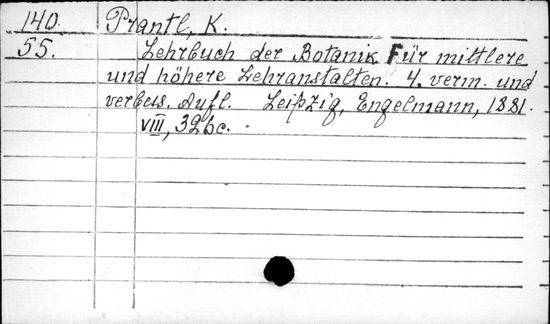 140. Prantl, K.
55. Lehrbuch der Botanik Für mittlere
und höhere Lehranstalten. 4. verm. und
verbess. Aufl. Leipzig, Engelmann, 1881.
VIII, 326 c.